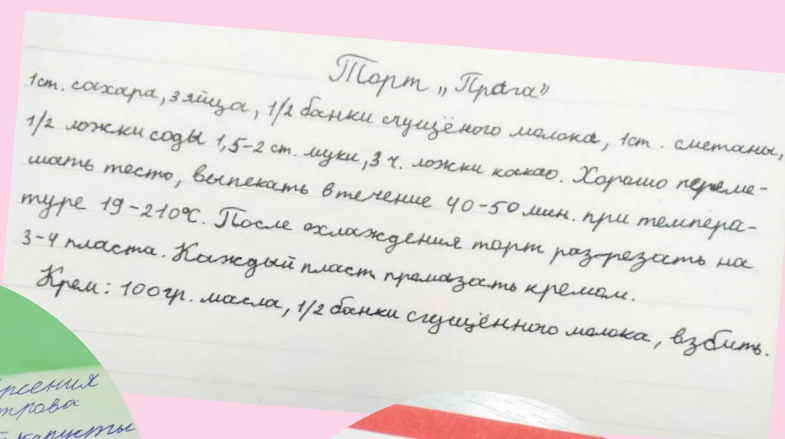 Торт „Прага"
1ст. сахара, 3 яйца, 1/2 банки сгущёного молока, 1ст. сметаны,
1/2 ложки соды 1,5-2 ст. муки, 3 ч. ложки какао. Хорошо переме-
шать тесто, выпекать в течение 40-50 мин. при темпера-
туре 19-210°С. После охлаждения торт раз-резать на
3-4 пласта. Каждый пласт промазать кремом.
Крем: 100гр. масла, 1/2 банки сгущённого молока, взбить.